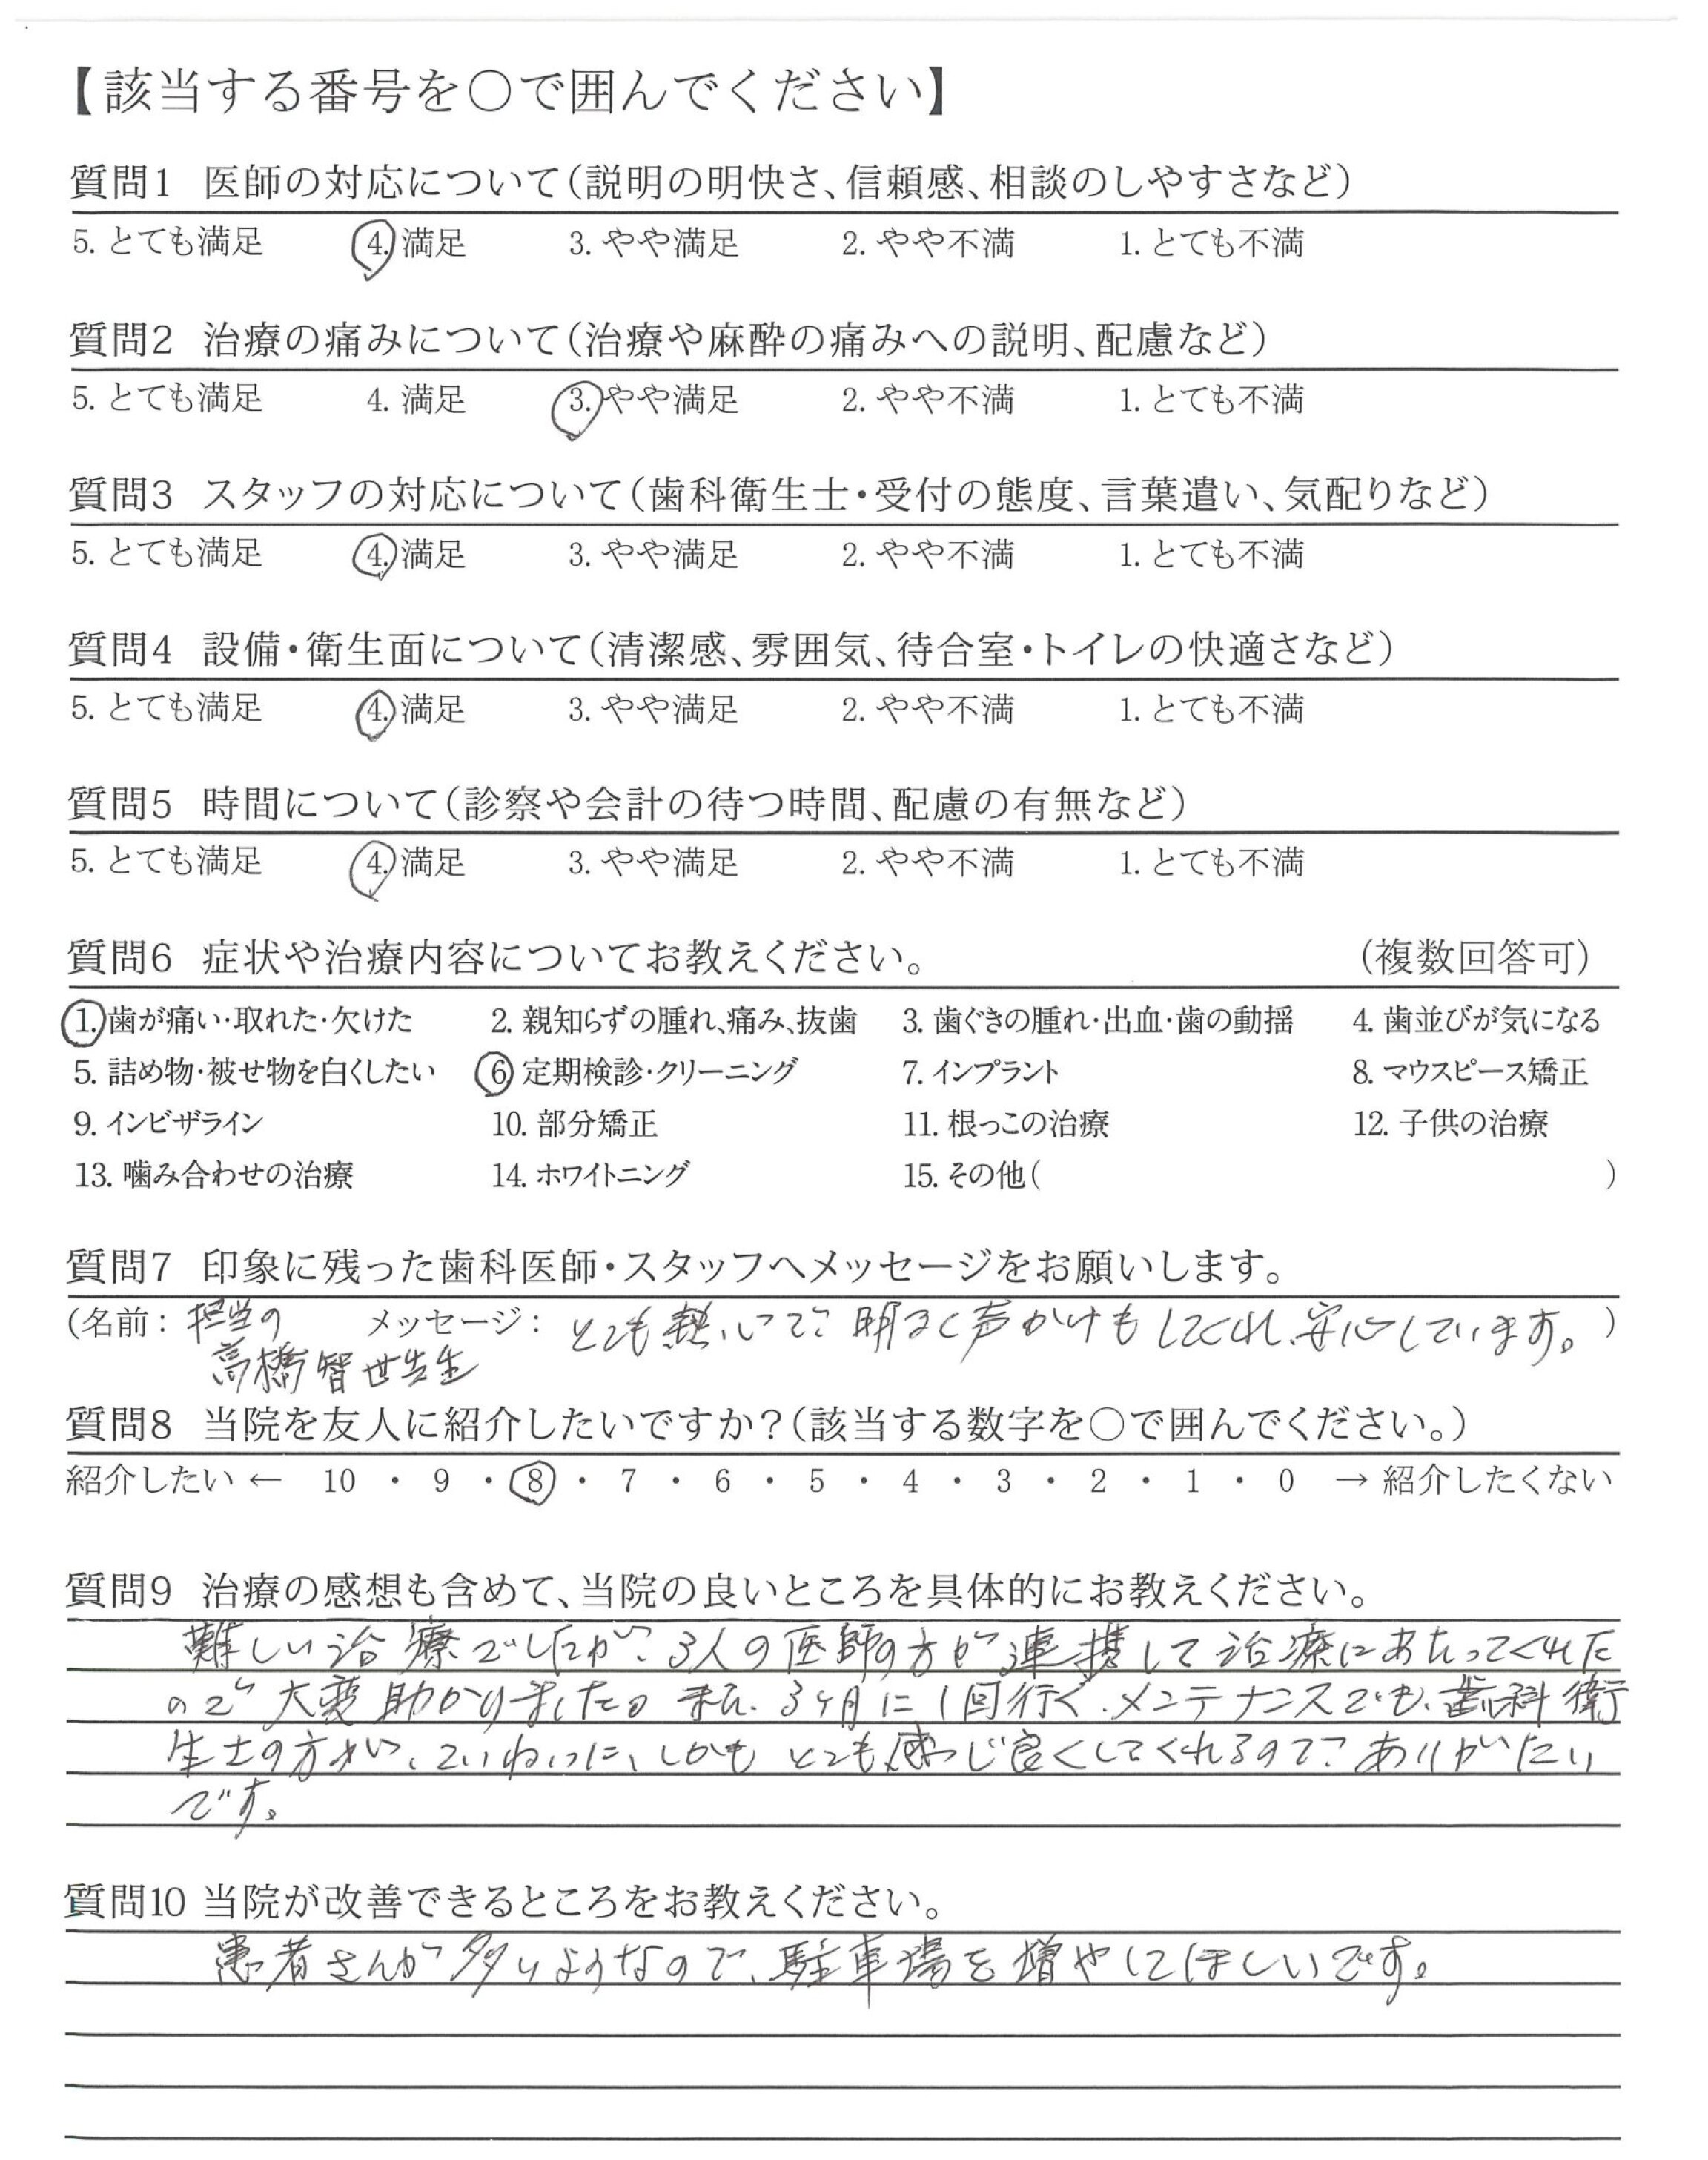 【該当する番号を○で囲んでください】
質問1 医師の対応について(説明の明快さ、信頼感、相談のしやすさなど)
5. とても満足 4. 満足 3. やや満足 2. やや不満 1. とても不満
質問2 治療の痛みについて(治療や麻酔の痛みへの説明、配慮など)
5. とても満足 4. 満足 3. やや満足 2. やや不満 1. とても不満
質問3 スタッフの対応について(歯科衛生士・受付の態度、言葉遣い、気配りなど)
5. とても満足 4. 満足 3. やや満足 2. やや不満 1. とても不満
質問4 設備・衛生面について(清潔感、雰囲気、待合室・トイレの快適さなど)
5. とても満足 4. 満足 3. やや満足 2. やや不満 1. とても不満
質問5 時間について(診察や会計の待つ時間、配慮の有無など)
5. とても満足 4. 満足 3. やや満足 2. やや不満 1. とても不満
質問6 症状や治療内容についてお教えください。 (複数回答可)
1. 歯が痛い・取れた・欠けた 2. 親知らずの腫れ、痛み、抜歯 3. 歯ぐきの腫れ・出血・歯の動揺 4. 歯並びが気になる
5. 詰め物・被せ物を白くしたい 6 定期検診・クリーニング 7. インプラント 8. マウスピース矯正
9. インビザライン 10. 部分矯正 11. 根っこの治療 12. 子供の治療
13. 噛み合わせの治療 14. ホワイトニング 15. その他( )
質問7 印象に残った歯科医師・スタッフへメッセージをお願いします。
(名前: 担当の メッセージ: とても 明るく声かけもしてくれ、安心しています。)
高橋智世先生
質問8 当院を友人に紹介したいですか?(該当する数字を○で囲んでください。)
紹介したい ← 10 ・ 9 ・ 8 ・ 7 ・ 6 ・ 5 ・ 4 ・ 3 ・ 2 ・ 1 ・ 0 → 紹介したくない
質問9 治療の感想も含めて、当院の良いところを具体的にお教えください。
難しい治療でしたが、3人の医師の方が連携して治療にあたってくれた
ので大変助かりました。また、3ヶ月に1回行くメンテナンスでも、歯科衛
生士の方が、ていねいに、しかもとても感じ良くしてくれるので、ありがたい
です。
質問10 当院が改善できるところをお教えください。
患者さんが多いようなので、駐車場を増やしてほしいです。